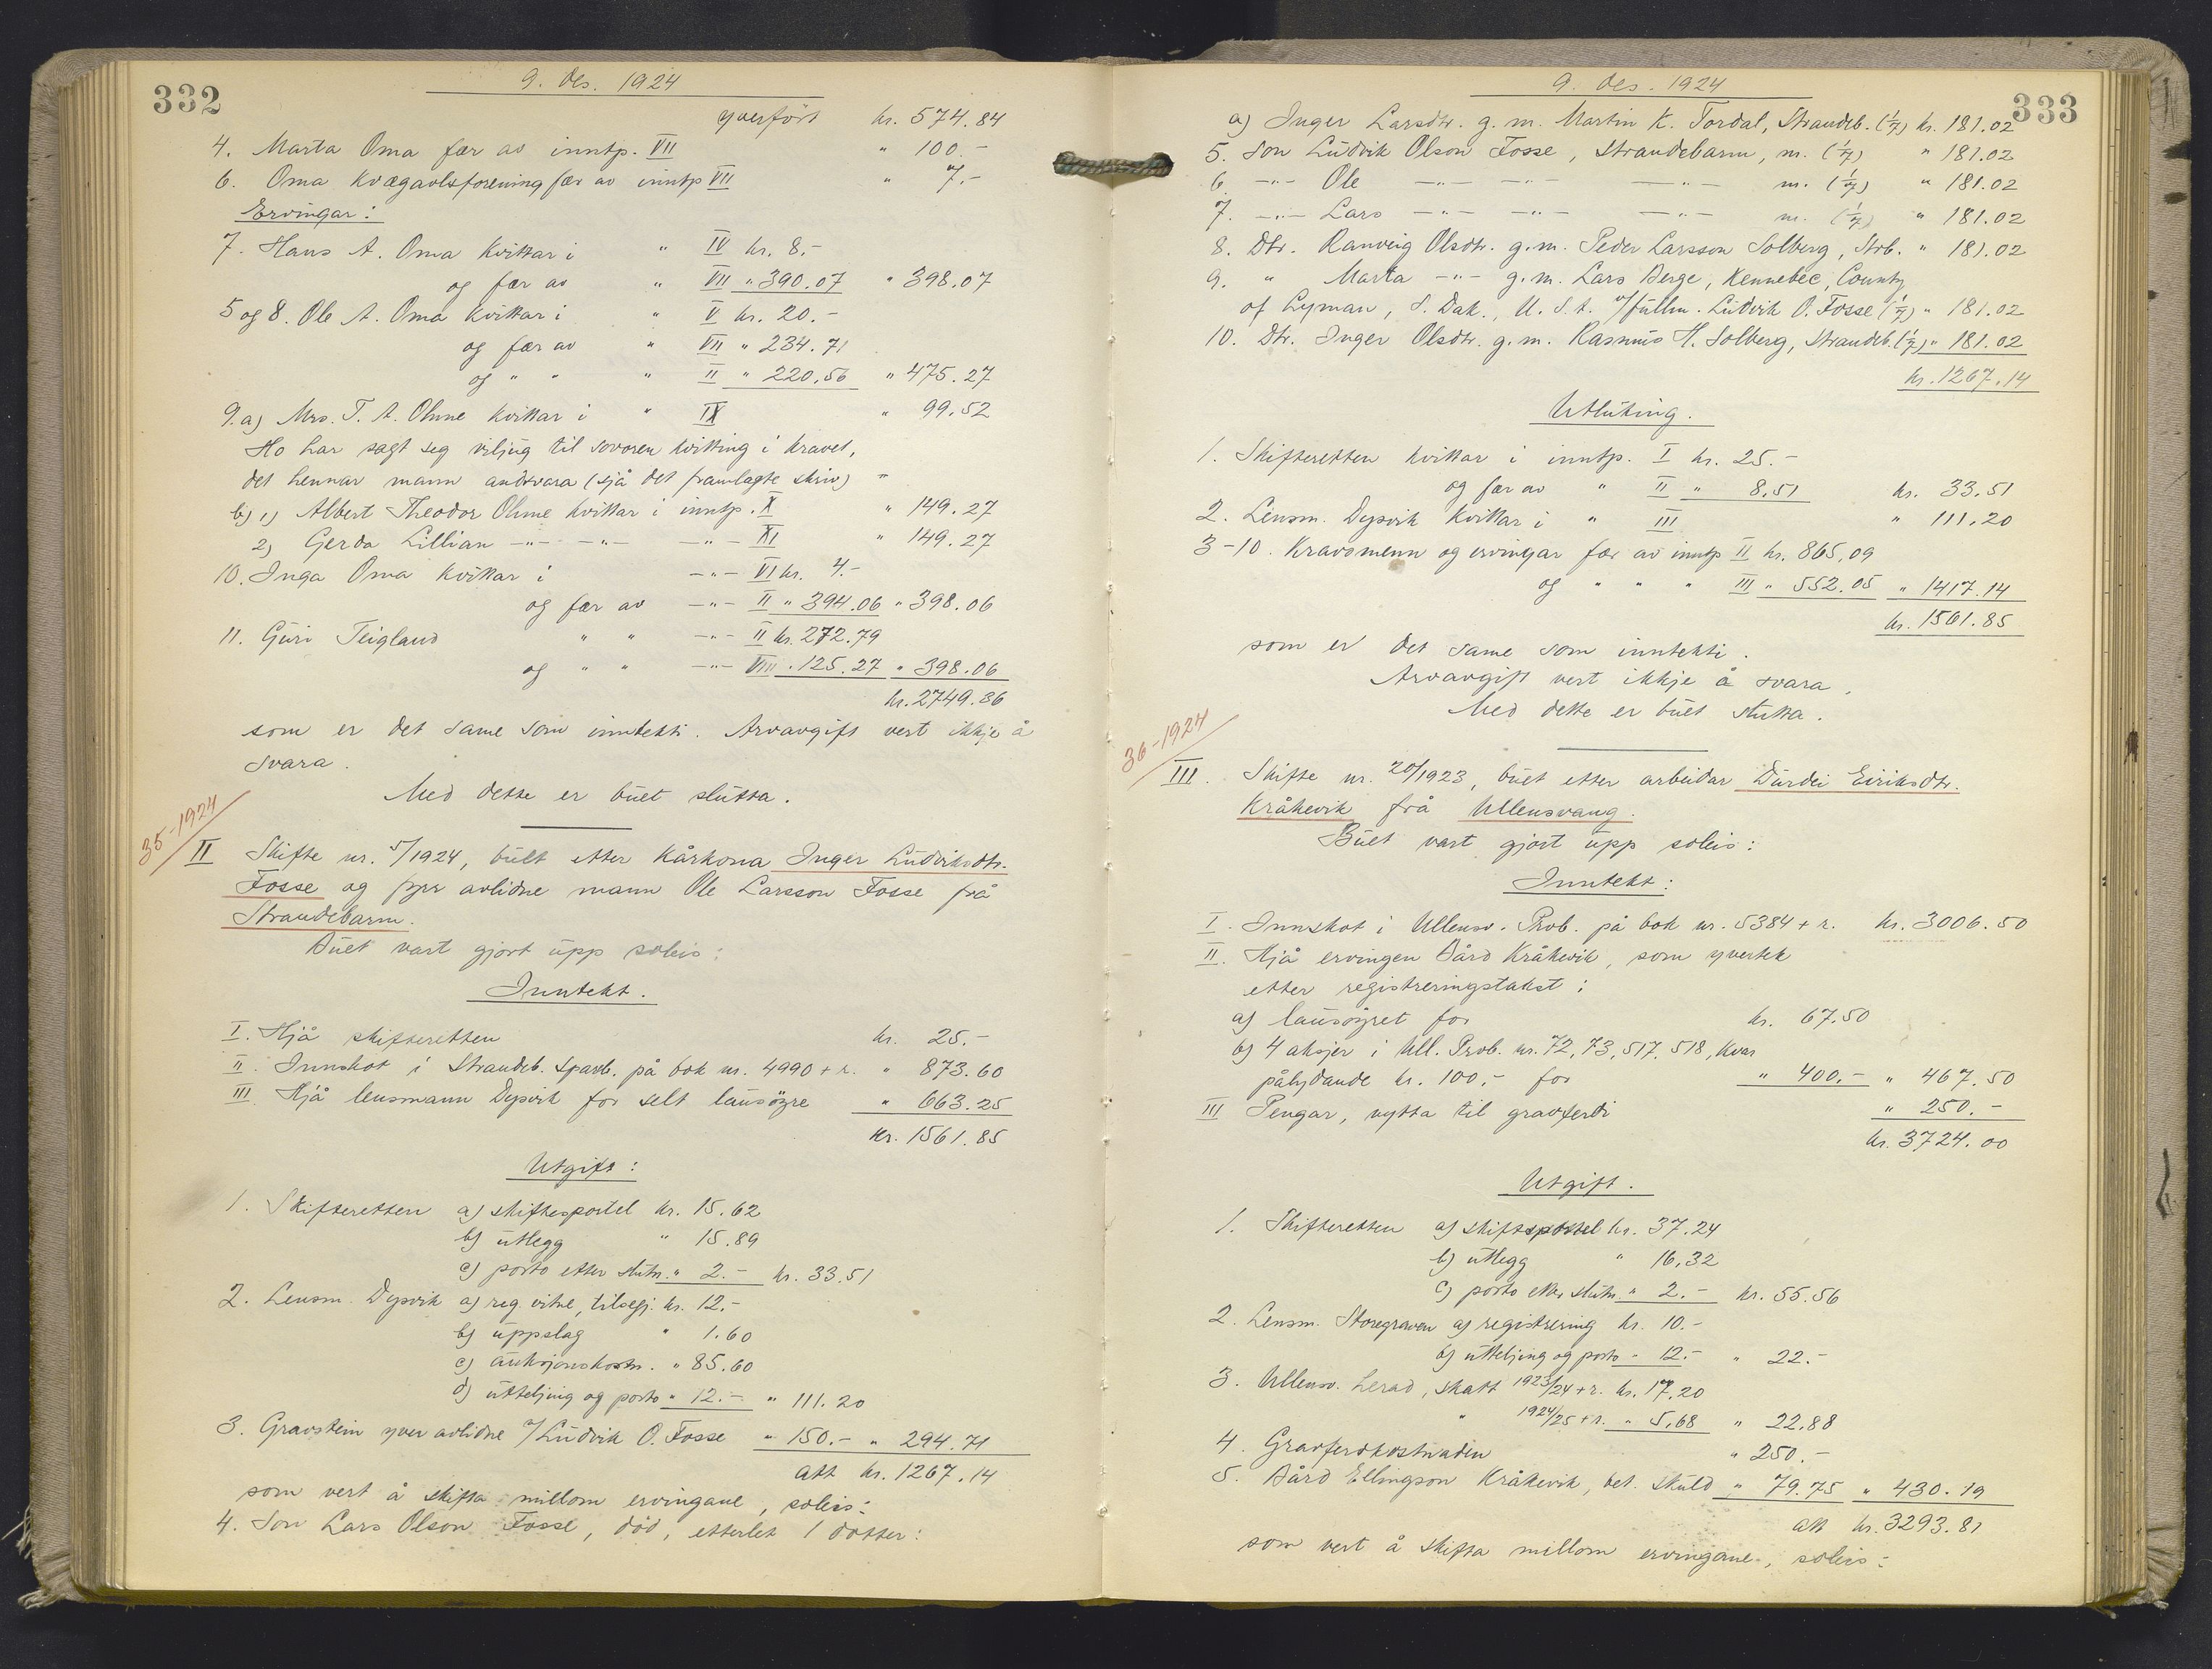 332
9. des. 1924
yverfört kr. 574.84
4. Marta Oma fær av inntp. VII " 100.-
6. Oma Kvægavlsforening fær av inntp VII " 7.-
Ervingar:
7. Hans A. Oma kvittar i " IV kr. 8.-
og fær av " VII " 390.07 " 398.07
5 og 8. Ole A. Oma kvittar i " V kr. 20.-
og fær av " VII " 234.71
og " " " II " 220.56 " 475.27
9. a) Mrs. T. A. Ohme kvittar i " IX " 99.52
Ho har sagt seg viljug til sovoren kvitting i kravet,
det hennar mann andsvara (sjå det framlagte skriv)
b) 1) Albert Theodor Ohme kvittar i inntp. X " 149.27
2) Gerda Lillian -"- -"- -"- XI " 149.27
10. Inga Oma kvittar i -"- VI kr. 4.-
og fær av -"- II " 394.06 " 398.06
11. Guri Teigland " " -"- II kr. 272.79
og " " -"- VIII " 125.27 " 398.06
kr. 2749.36
som er det same som inntekti. Arvavgift vert ikkje å
svara.
Med dette er buet slutta.
35-1924
II Skifte nr. 5/1924, buet etter kårkona Inger Ludviksdtr.
Fosse og fyrr avlidne mann Ole Larsson Fosse frå
Strandebarm.
Buet vart gjort upp soleis:
Inntekt.
I. Hjå skifteretten kr. 25.-
II. Innskot i Strandeb. Sparb. på bok nr. 4990 + r. " 873.60
III. Hjå lensmann Dysvik for selt lausöyre " 663.25
kr. 1561.85
Utgift:
1. Skifteretten a) skiftesportel kr. 15.62
b) utlegg " 15.89
c) porto etter slutn. " 2.- kr. 33.51
2. Lensm. Dysvik a) reg. vitne, tilsegj. kr. 12.-
b) uppslag " 1.60
c) auksjonskostn. " 85.60
d) utteljing og porto " 12.- " 111.20
3. Gravstein yver avlidne v/Ludvik O. Fosse " 150.- " 294.71
att kr. 1267.14
som vert å skifta millom ervingane, soleis:
4. Son Lars Olson Fosse, död, etterlet 1 dotter:
333
9. des. 1924
a) Inger Larsdtr. g. m. Martin K. Tordal, Strandeb. (1/7) kr. 181.02
5. Son Ludvik Olson Fosse, Strandebarm, m. (1/7) " 181.02
6. -"- Ole -"- -"- -"- m. (1/7) " 181.02
7. -"- Lars -"- -"- -"- m. (1/7) " 181.02
8. Dtr. Ranveig Olsdtr. g. m. Peder Larsson Solberg, Strb. " 181.02
9. " Marta -"- g. m. Lars Berge, Kennebec, County
of Lyman, S. Dak., U. S. A. v/fullm. Ludvik O. Fosse (1/7) " 181.02
10. Dtr. Inger Olsdtr. g. m. Rasmus H. Solberg, Strandeb. (1/7) " 181.02
kr. 1267.14
Utluting.
1. Skifteretten kvittar i inntp. I kr. 25.-
og fær av " II " 8.51 kr. 33.51
2. Lensm. Dysvik kvittar i " III " 111.20
3-10. Kravsmenn og ervingar fær av inntp II kr. 865.09
og " " " III " 552.05 " 1417.14
kr. 1561.85
som er det same som inntekti.
Arvavgift vert ikkje å svara.
Med dette er buet slutta.
36-1924
III. Skifte nr. 20/1923, buet etter arbeidar Durdei Eiriksdtr.
Kråkevik frå Ullensvang.
Buet vart gjort upp soleis:
Inntekt:
I. Innskot i Ullensv. Prvb. på bok nr. 5384 + r. kr. 3006.50
II. Hjå ervingen Bård Kråkevik, som yvertek
etter registreringstakst:
a) lausöyret for kr. 67.50
b) 4 aksjer i Ull. Prvb. nr. 72, 73, 517, 518, kvar
pålydande kr. 100.- for " 400.- " 467.50
III Pengar, nytta til gravferdi " 250.-
kr. 3724.00
Utgift.
1. Skifteretten a) skiftsportel kr. 37.24
b) utlegg " 16.32
c) porto etter slutn. " 2.- kr. 55.56
2. Lensm. Storegraven a) registrering kr. 10.-
b) utteljing og porto " 12.- " 22.-
3. Ullensv. herad, skatt 1923/24 + r. kr. 17.20
" 1924/25 + r. " 5.68 " 22.88
4. Gravferdkostnaden " 250.-
5. Bård Ellingson Kråkevik, bet. skuld " 79.75 " 430.19
att kr. 3293.81
som vert å skifta millom ervingane, soleis: